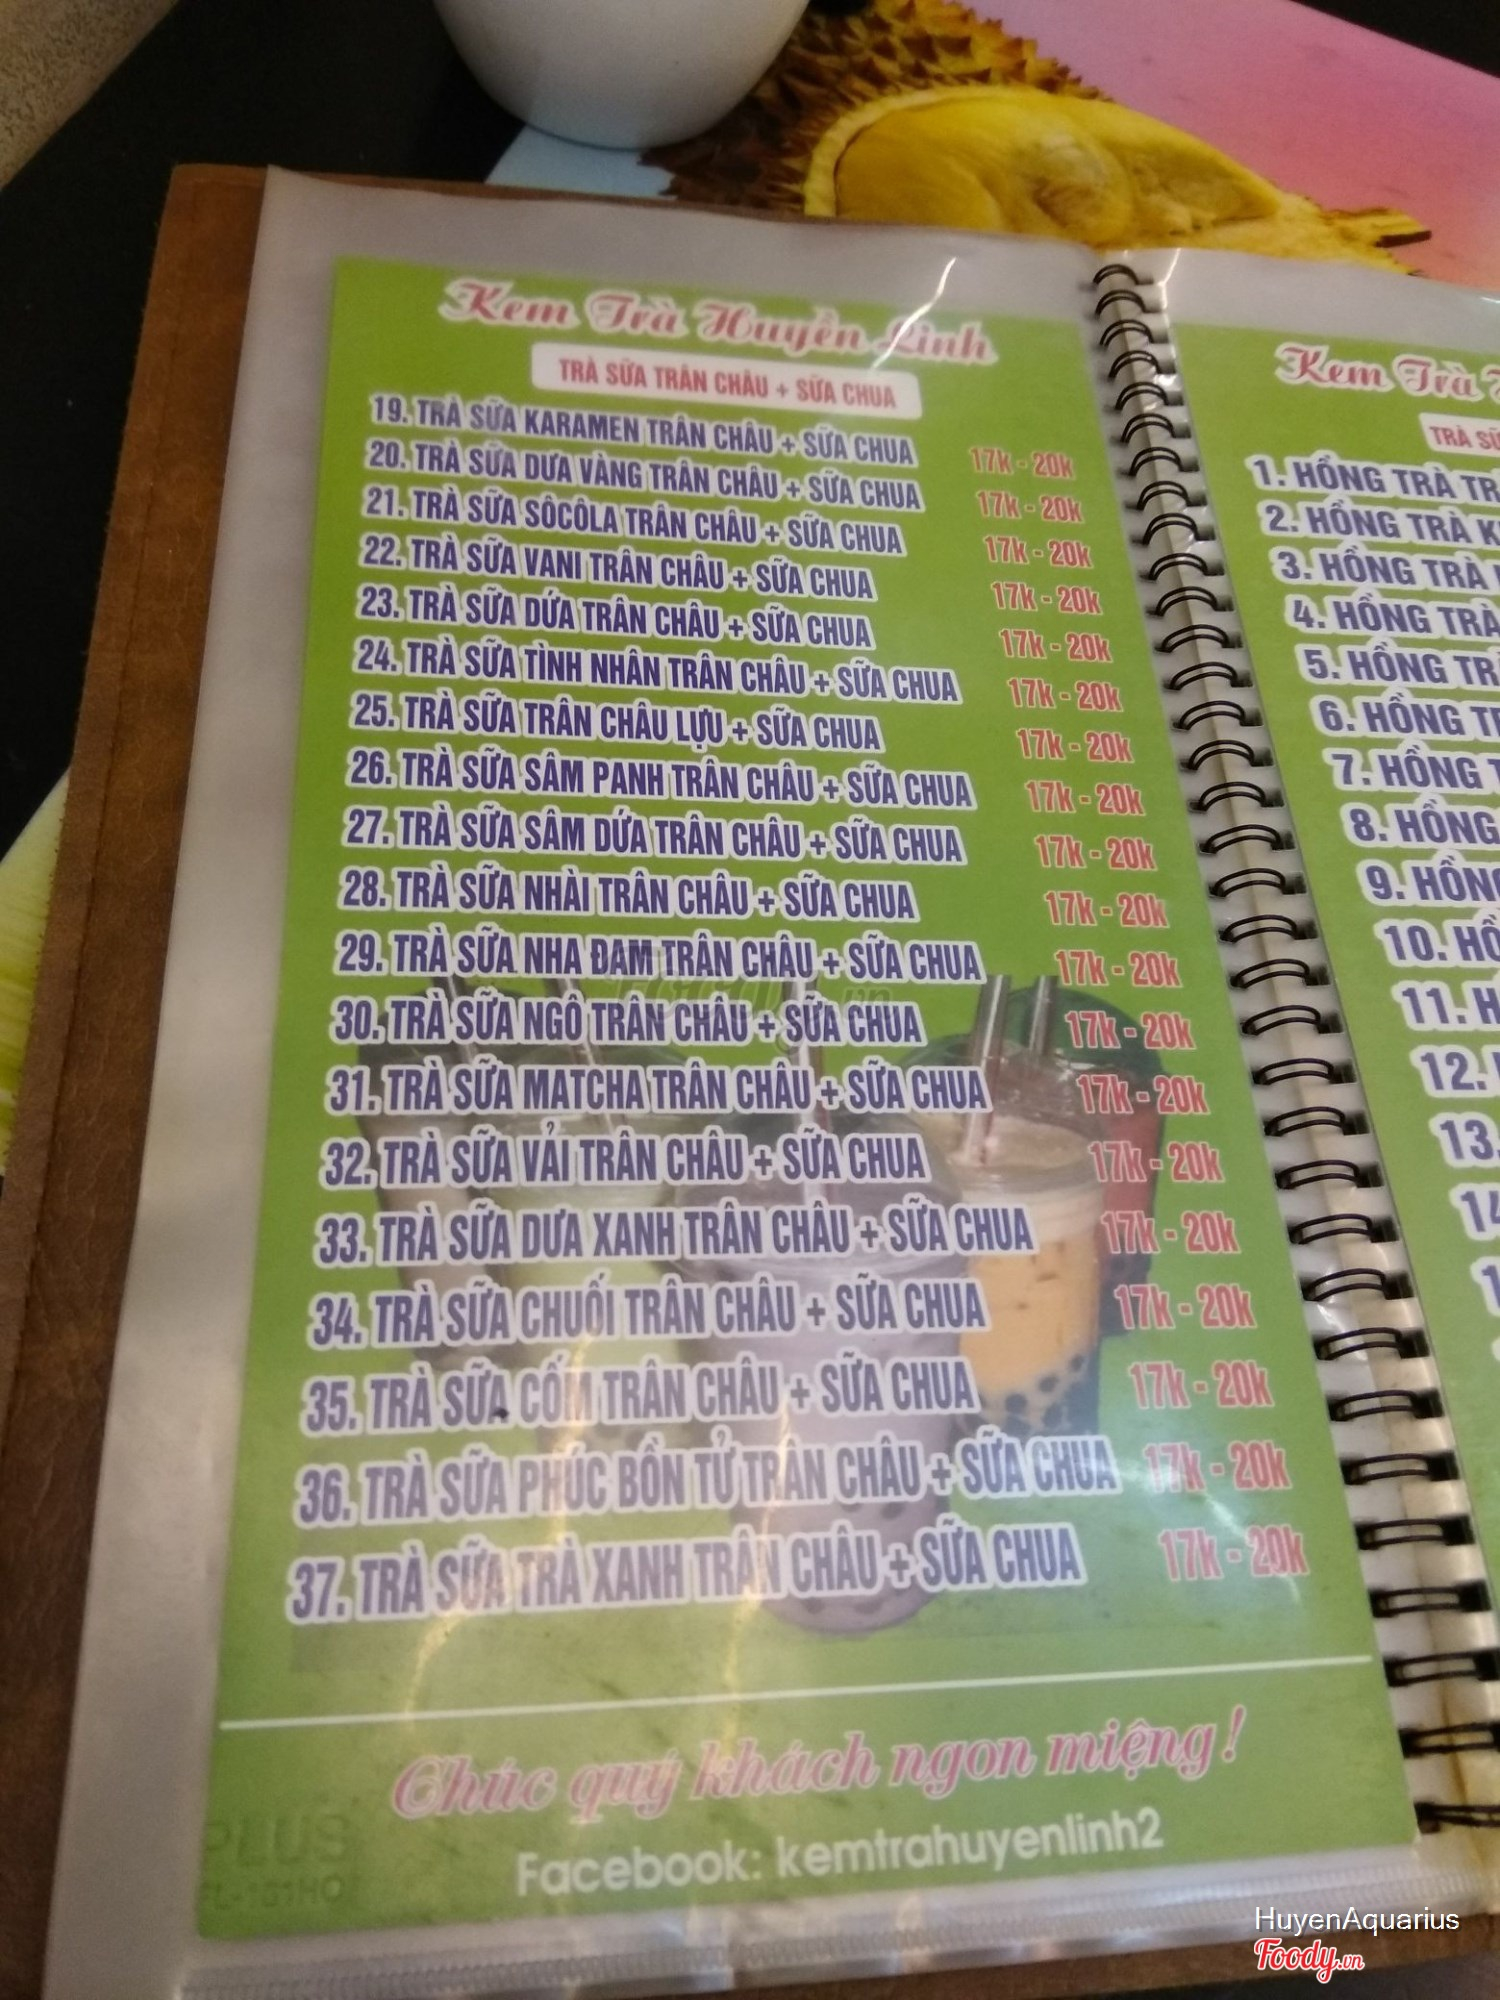 Kem Trà Huyền Linh
TRÀ SỮA TRÂN CHÂU + SỮA CHUA
19. TRÀ SỮA KARAMEN TRÂN CHÂU + SỮA CHUA 17k - 20k
20. TRÀ SỮA DƯA VÀNG TRÂN CHÂU + SỮA CHUA 17k - 20k
21. TRÀ SỮA SÔCÔLA TRÂN CHÂU + SỮA CHUA 17k - 20k
22. TRÀ SỮA VANI TRÂN CHÂU + SỮA CHUA 17k - 20k
23. TRÀ SỮA DỨA TRÂN CHÂU + SỮA CHUA 17k - 20k
24. TRÀ SỮA TÌNH NHÂN TRÂN CHÂU + SỮA CHUA 17k - 20k
25. TRÀ SỮA TRÂN CHÂU LỰU + SỮA CHUA 17k - 20k
26. TRÀ SỮA SÂM PANH TRÂN CHÂU + SỮA CHUA 17k - 20k
27. TRÀ SỮA SÂM DỨA TRÂN CHÂU + SỮA CHUA 17k - 20k
28. TRÀ SỮA NHÀI TRÂN CHÂU + SỮA CHUA 17k - 20k
29. TRÀ SỮA NHA ĐAM TRÂN CHÂU + SỮA CHUA 17k - 20k
30. TRÀ SỮA NGÔ TRÂN CHÂU + SỮA CHUA 17k - 20k
31. TRÀ SỮA MATCHA TRÂN CHÂU + SỮA CHUA 17k - 20k
32. TRÀ SỮA VẢI TRÂN CHÂU + SỮA CHUA 17k - 20k
33. TRÀ SỮA DƯA XANH TRÂN CHÂU + SỮA CHUA 17k - 20k
34. TRÀ SỮA CHUỐI TRÂN CHÂU + SỮA CHUA 17k - 20k
35. TRÀ SỮA CỐM TRÂN CHÂU + SỮA CHUA 17k - 20k
36. TRÀ SỮA PHÚC BỒN TỬ TRÂN CHÂU + SỮA CHUA 17k - 20k
37. TRÀ SỮA TRÀ XANH TRÂN CHÂU + SỮA CHUA 17k - 20k
Chúc quý khách ngon miệng!
Facebook: kemtrahuyenlinh2
PLUS
Kem Trà
TRÀ
1. HỒNG TRÀ
2. HỒNG TRÀ
3. HỒNG TRÀ
4. HỒNG TRÀ
5. HỒNG
6. HỒNG
7. HỒNG
8. HỒNG
9.
10.
11.
12.
13.
HuyenAquarius
Foody.vn